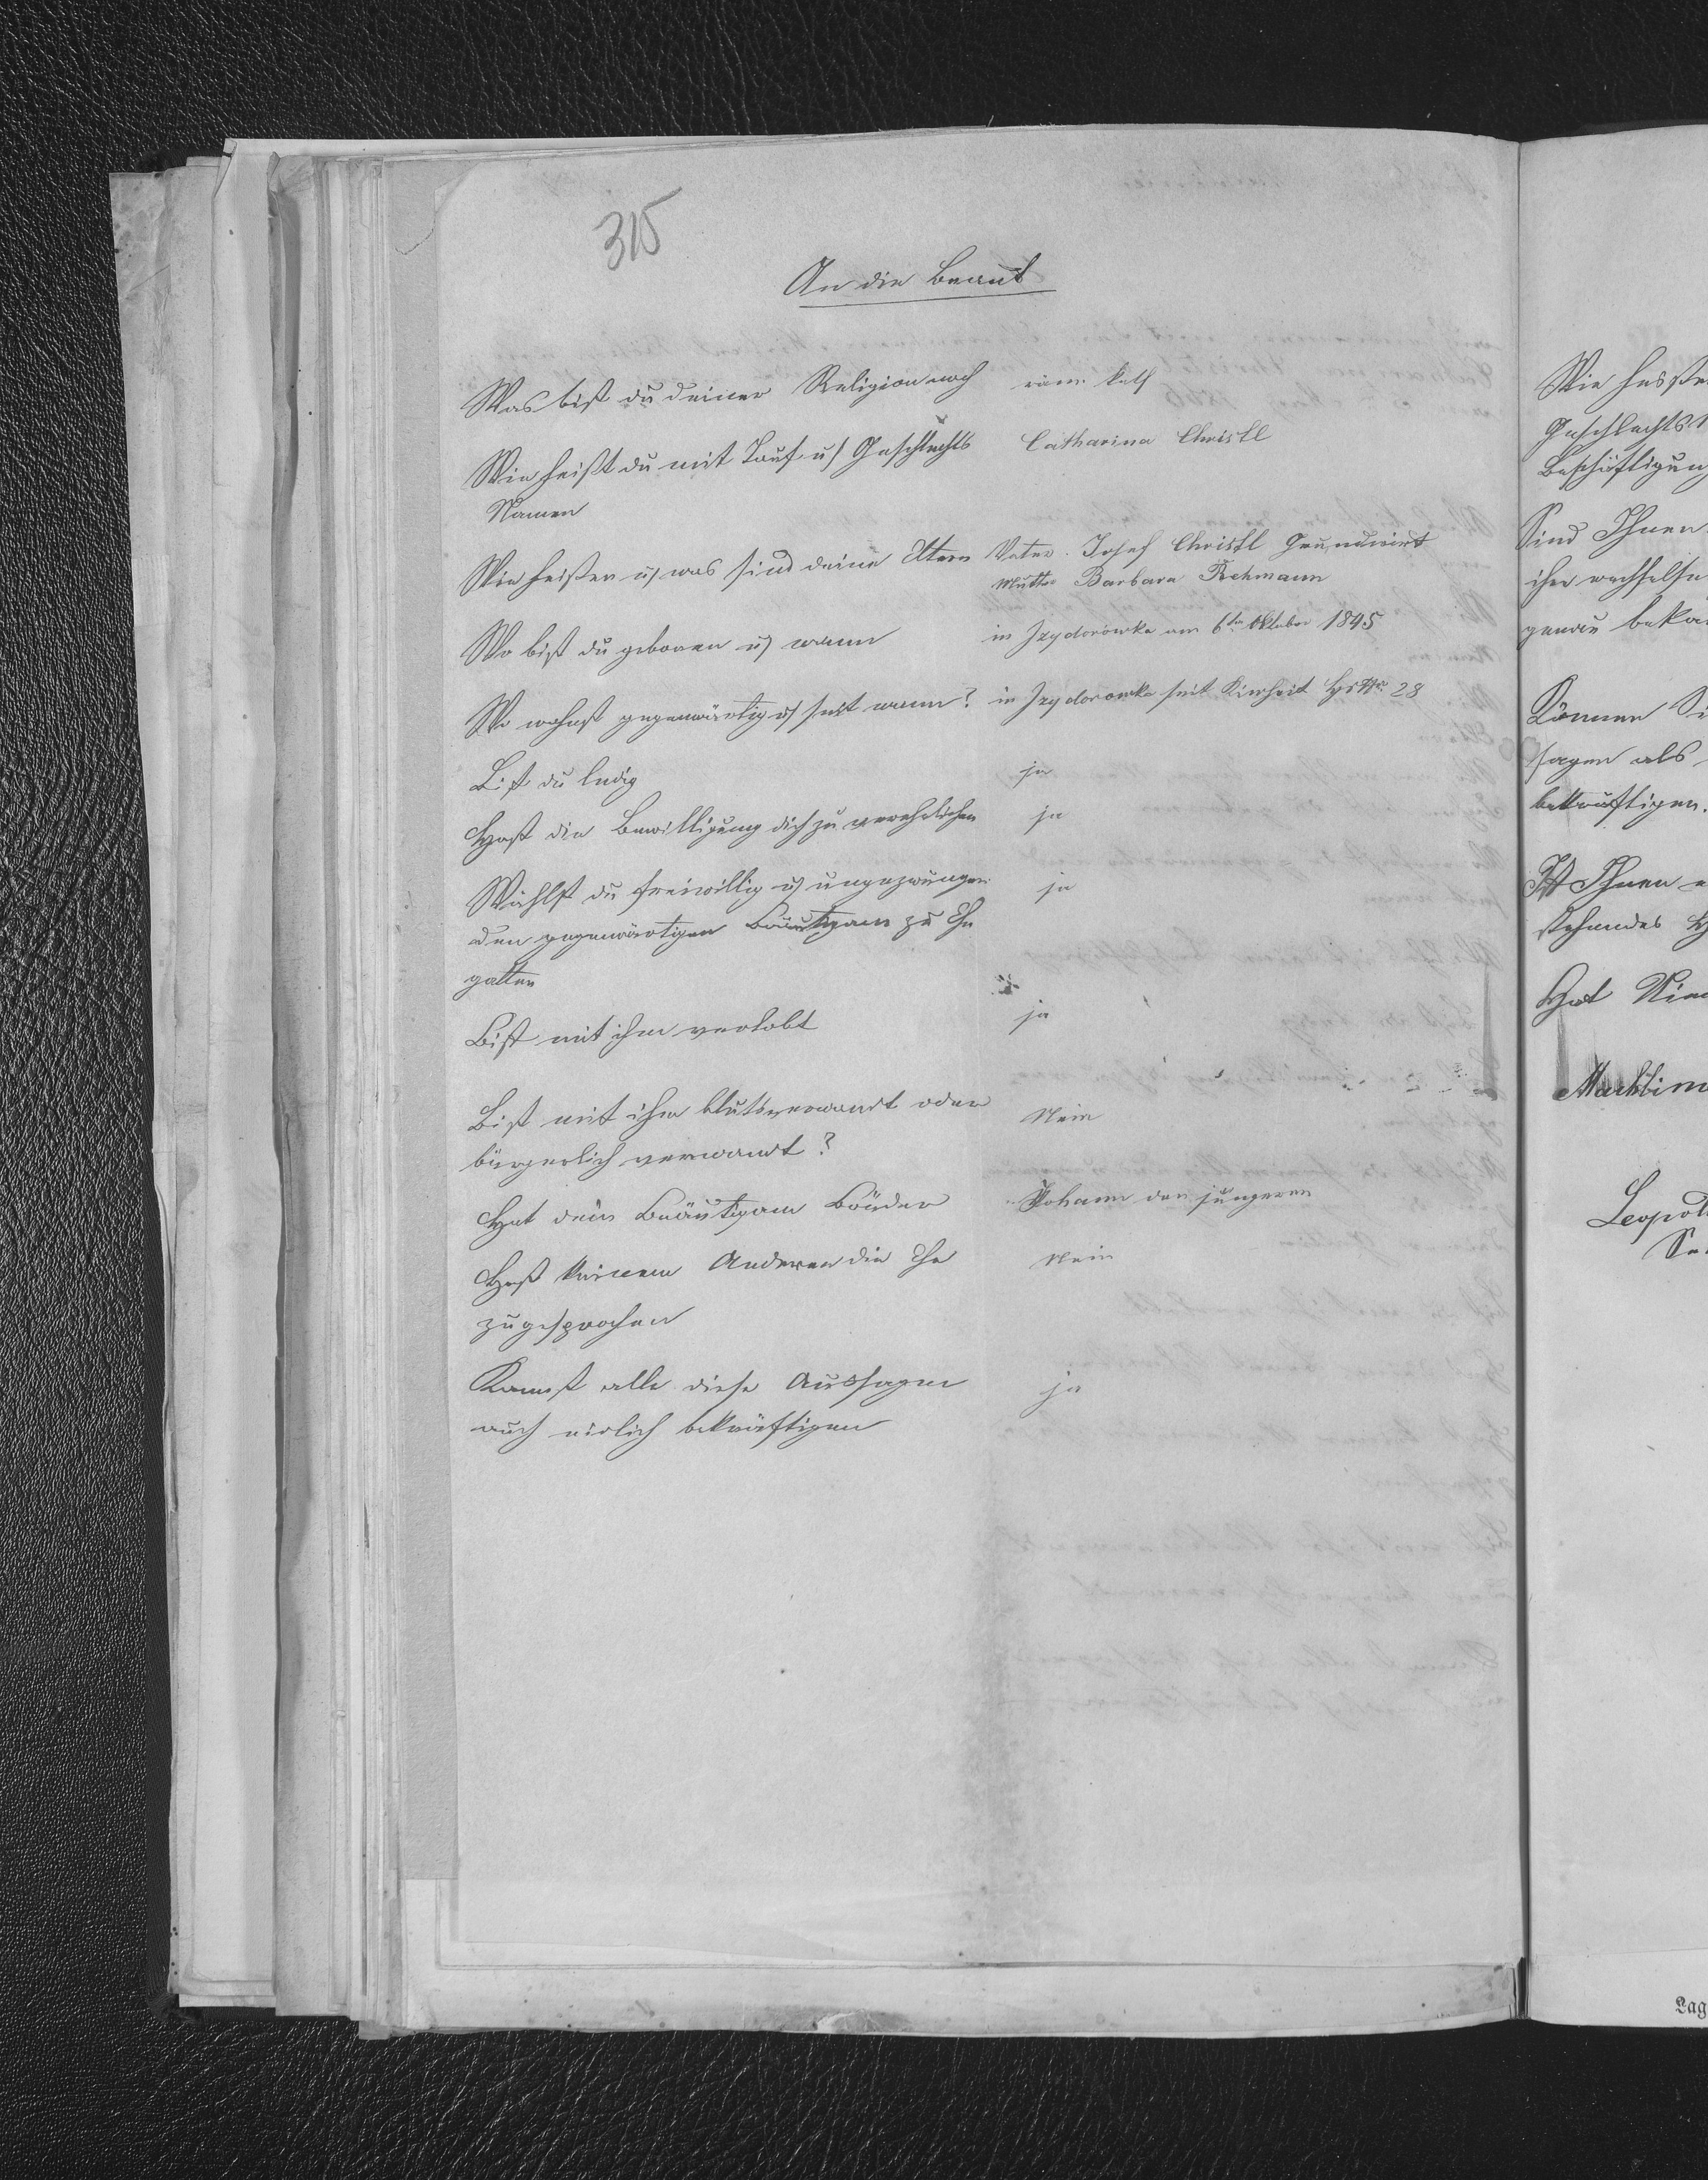 315
An die Braut
Was bist du deiner Religion nach röm. kath
Wie heißt du mit Tauf u Geschlechts Catharina Christl
Namen
Wie heißen u was sind deine Eltern Vater. Josef Christl Grundwirt
Mutter Barbara Rehmann
Wo bist du geboren u wann in Izydorówka am 6ten Oktober 1845
Wo wohnst gegenwärtig u seit wann? in Izydorowka seit Kindheit Hs No 28
Bist du ledig ja
Hast die Bewilligung dich zu verehelichen ja
Wählst du freiwillig u ungezwungen ja
den gegenwärtigen Bräutigam zu Ehe
gatten
Bist mit ihm verlobt ja
Bist mit ihm blutsverwandt oder Nein
bürgerlich verwandt?
Hat dein Bräutigam Brüder Johann den jüngeren
Hast keinem Anderen die Ehe Nein
zugesprochen
Kannst alle diese Aussagen ja
auch eidlich bekräftigen
Wie heißen
Geschlechts
Beschäftigung
Sind Ihnen
ihre wechselse
genau beka
Können Si
sagen als
bekräftigen.
Ist Ihnen
stehendes
Hat Niem
Leopol
Lag